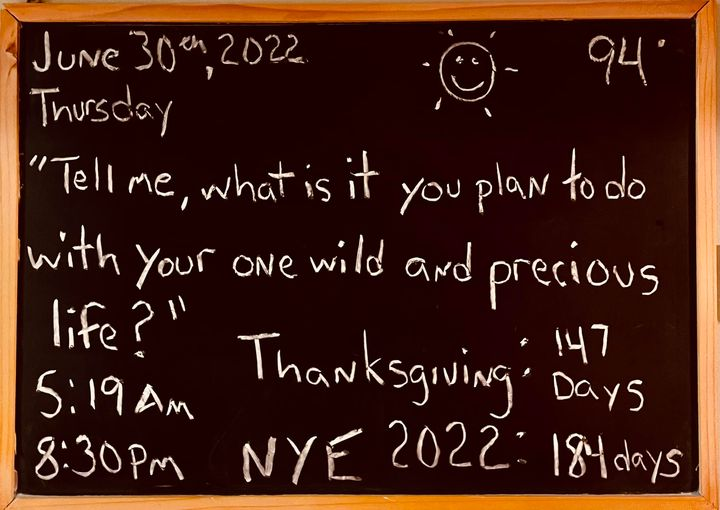 June 30th, 2022 94°
Thursday
"Tell me, what is it you plan to do
with your one wild and precious
life?"
Thanksgiving: 147
Days
5:19 Am
8:30 Pm NYE 2022: 184 days